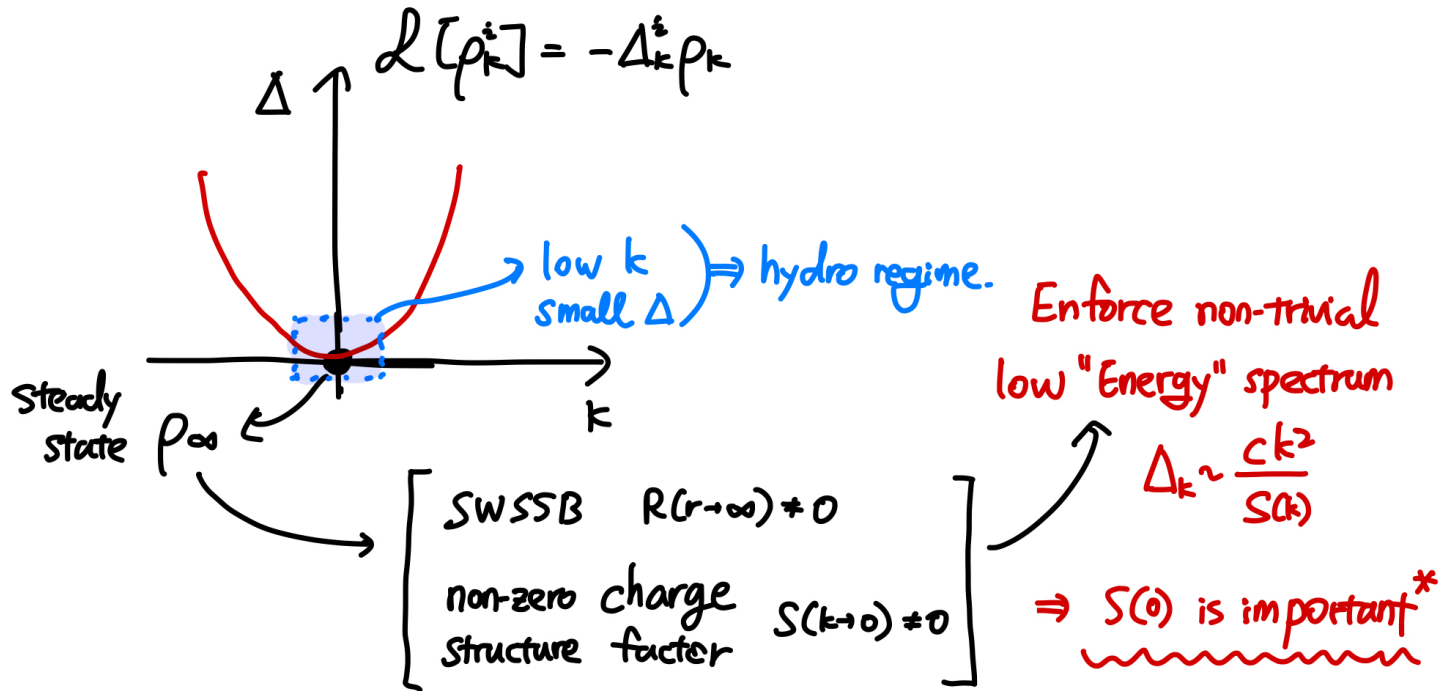 ℒ[ρₖⁱ] = -Δₖⁱ ρₖ
Δ
low k
small Δ
⇒ hydro regime.
k
steady
state ρ∞
SWSSB R(r→∞) ≠ 0
non-zero charge
structure factor S(k→0) ≠ 0
Enforce non-trivial
low "Energy" spectrum
Δₖ ~ ck²/S(k)
⇒ S(0) is important*